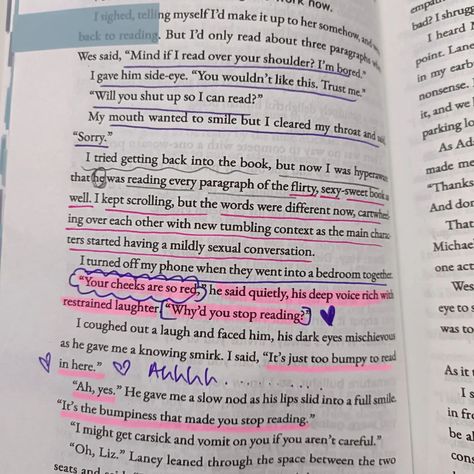 work now.
I sighed, telling myself I'd make it up to her somehow, and
back to reading. But I'd only read about three paragraphs when
Wes said, "Mind if I read over your shoulder? I'm bored."
I gave him side-eye. "You wouldn't like this. Trust me."
"Will you shut up so I can read?"
My mouth wanted to smile but I cleared my throat and said,
"Sorry."
I tried getting back into the book, but now I was hyperaware
that he was reading every paragraph of the flirty, sexy-sweet book as
well. I kept scrolling, but the words were different now, cartwheel-
ing over each other with new tumbling context as the main charac-
ters started having a mildly sexual conversation.
I turned off my phone when they went into a bedroom together.
"Your cheeks are so red," he said quietly, his deep voice rich with
restrained laughter. "Why'd you stop reading?"
I coughed out a laugh and faced him, his dark eyes mischievous
as he gave me a knowing smirk. I said, "It's just too bumpy to read
in here." Ahhhh..........
"Ah, yes." He gave me a slow nod as his lips slid into a full smile.
"It's the bumpiness that made you stop reading."
"I might get carsick and vomit on you if you aren't careful."
"Oh, Liz." Laney leaned through the space between the two
seats and
empath
bad? I shrugg
I heard
point. Lane
in my earb
nonsense.
it, and we
parking lo
As Ada
made me
"Thanks
And don
That
Michae
one act
Wes
eye to s
was to
As it t
I s
in fro
be al
cons